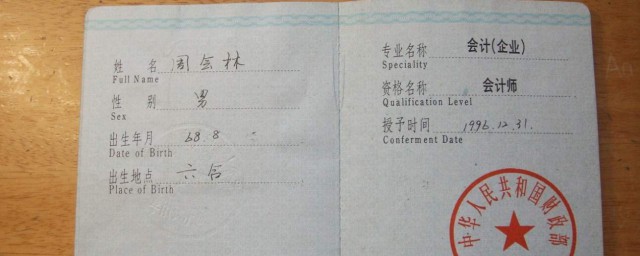 姓 名 周会林
Full Name
性 别 男
Sex
出生年月 68.8
Date of Birth
出生地点 六合
Place of Birth
专业名称 会计(企业)
Speciality
资格名称 会计师
Qualification Level
授予时间 1996.12.31.
Conferment Date
中华人民共和国财政部